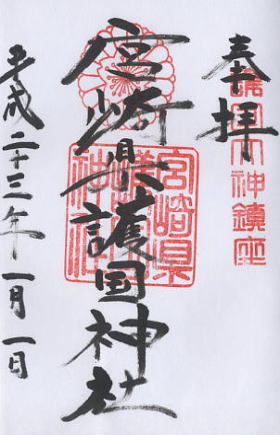 奉拝
護国大神鎮座
宮崎県護国神社
宮崎県護国神社
平成二十三年一月一日